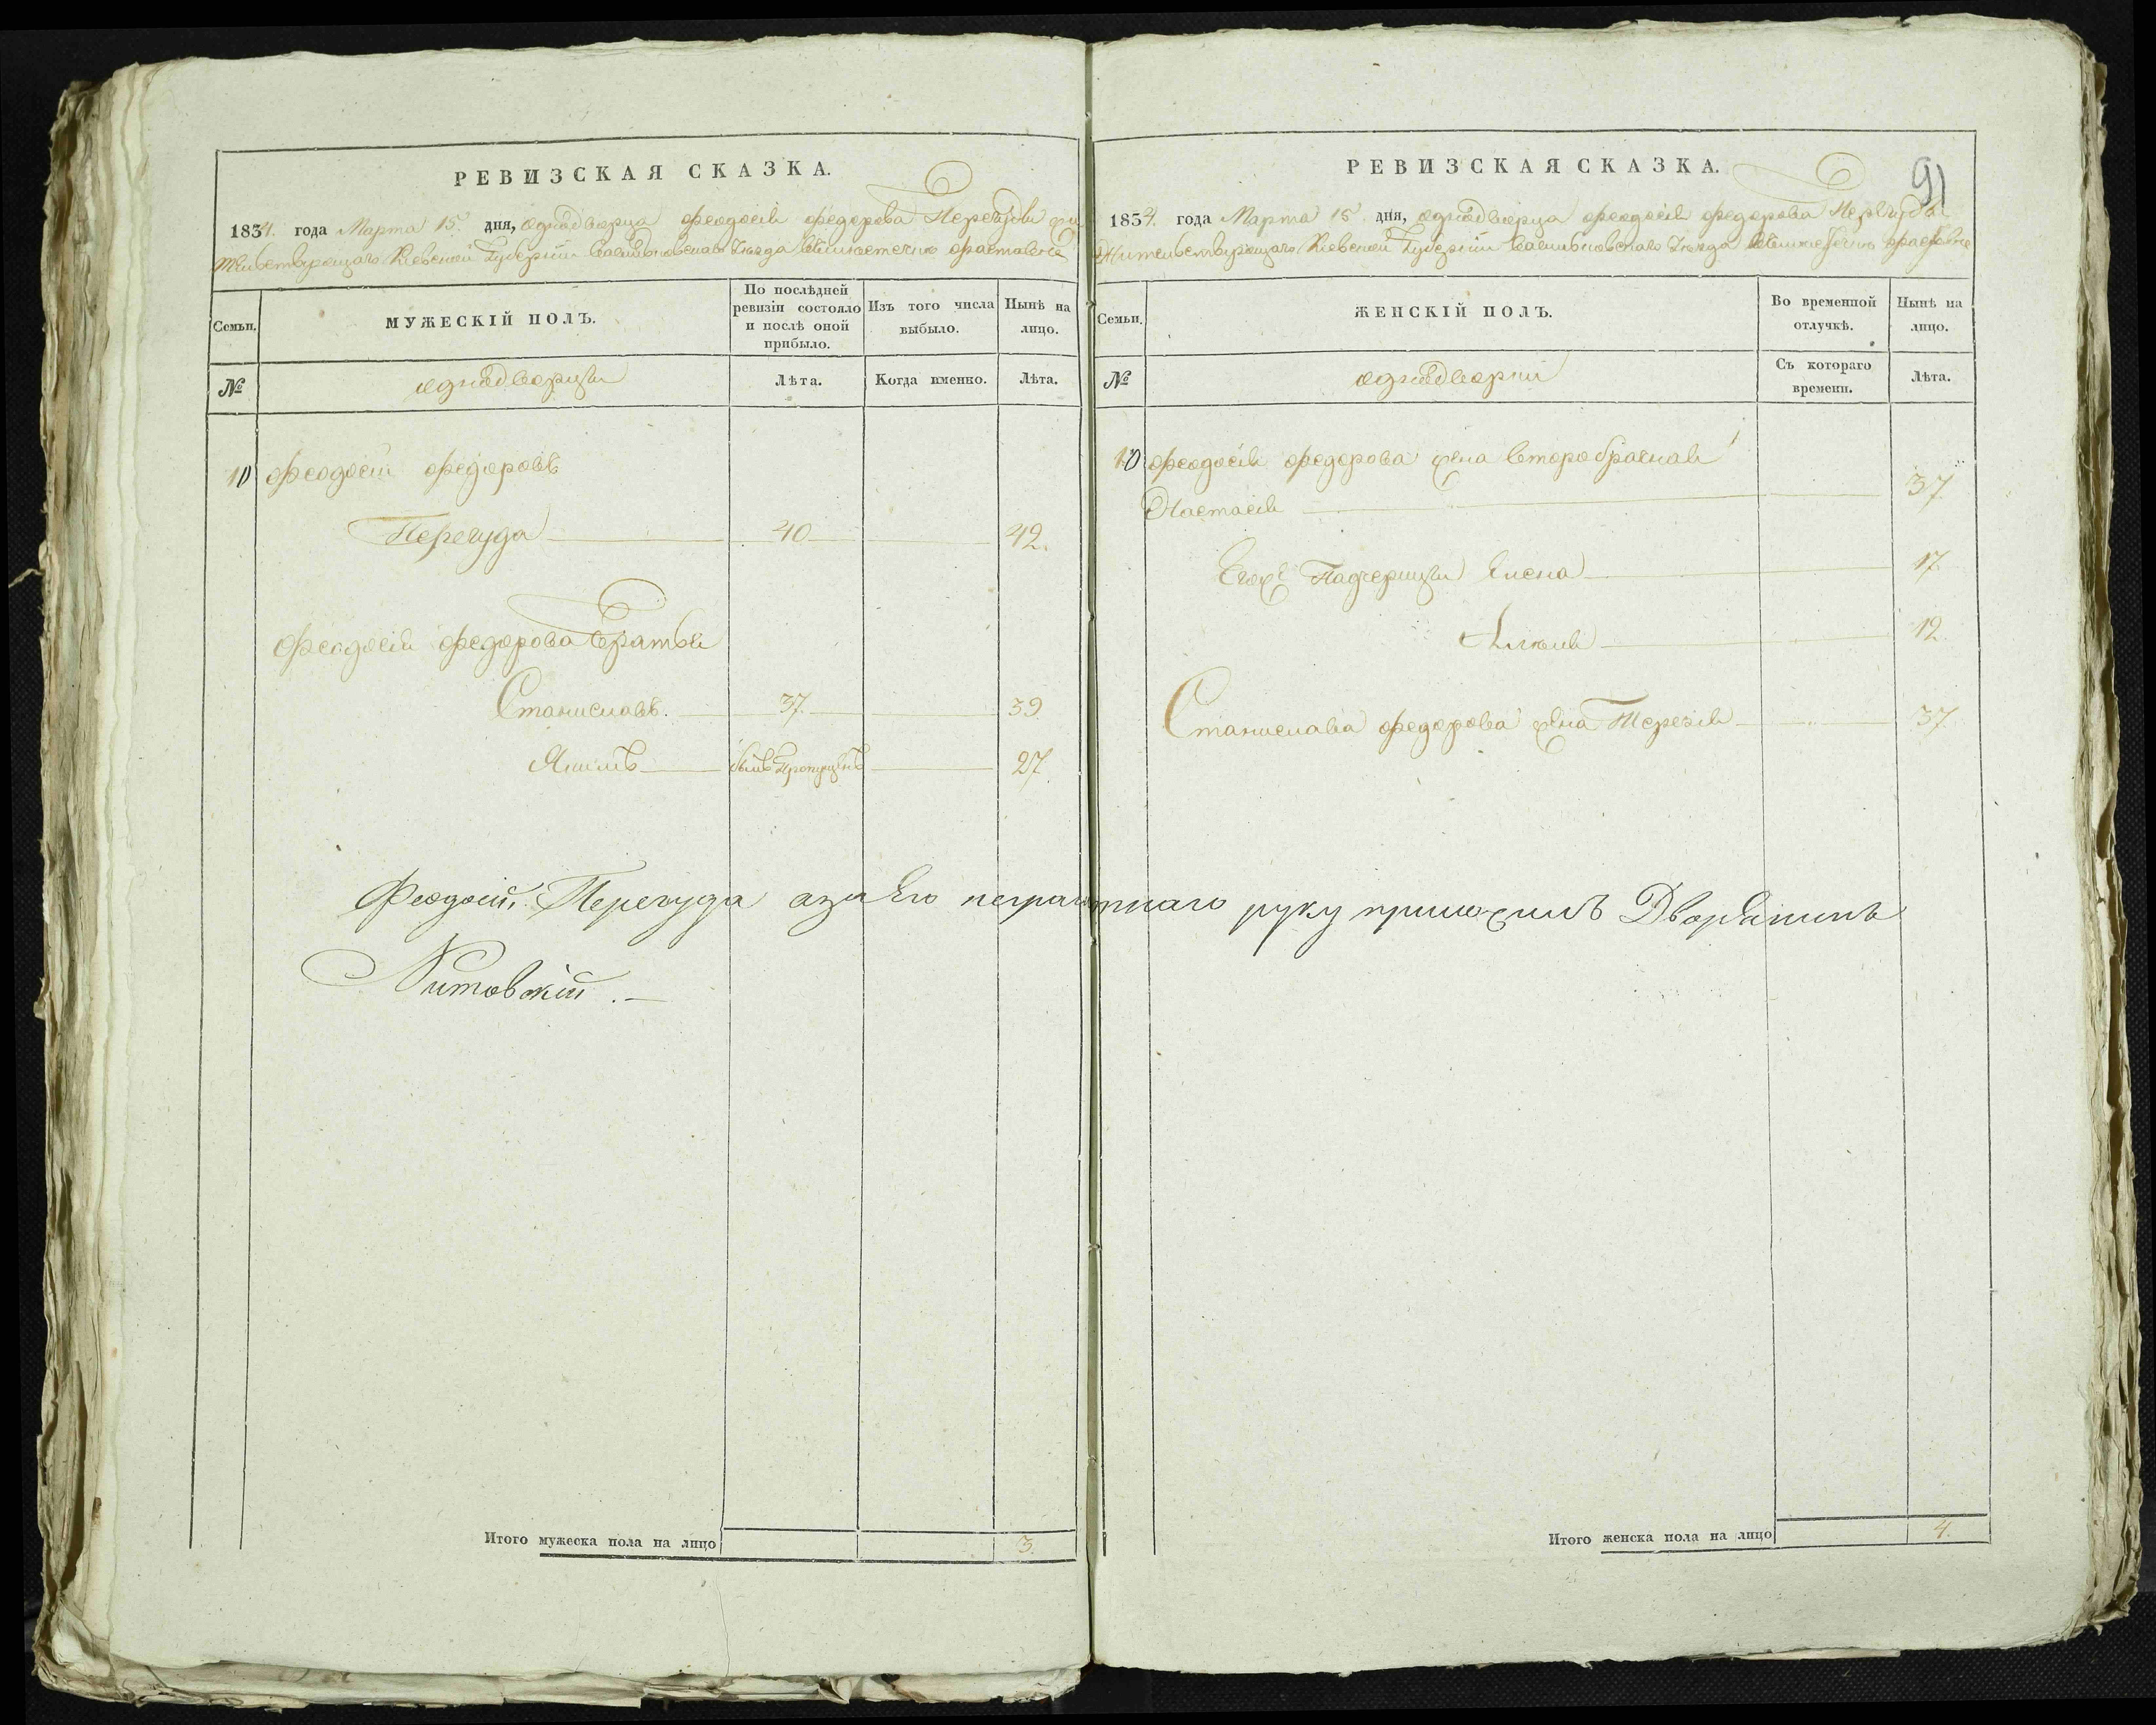 РЕВИЗСКАЯ СКАЗКА.
1834. года Марта 15. дня, однодворца Феодосія Федорова Перегуды жи-
тельствующаго Кіевской Губерніи Васильковскаго Уезда въ местечке Фастовѣ
Семьи.
МУЖЕСКІЙ ПОЛЪ.
По послѣдней ревизіи состояло и послѣ оной прибыло.
Изъ того числа выбыло.
Нынѣ на лицо.
№
однодворцы
Лѣта.
Когда именно.
Лѣта.
10 Феодосій Федоровъ
Перегуда 40 42.
Феодосія Федорова Братья
Станиславъ. 37. 39.
Якимъ былъ Пропущенъ 27.
Феодосій Перегуда а за Его неграмотнаго руку приложилъ Дворянинъ
Литовскій.
Итого мужеска пола на лицо 3.
РЕВИЗСКАЯ СКАЗКА.
91
1834. года Марта 15. дня, однодворца Феодосія Федорова Перегуды
Жительствующаго Кіевской Губерніи Васильковскаго Уезда въ местечке Фастовѣ
Семьи.
ЖЕНСКІЙ ПОЛЪ.
Во временной отлучкѣ.
Нынѣ на лицо.
№
однодворки
Съ котораго времени.
Лѣта.
10 Феодосія Федорова жена второбрачная
Настасія 37.
Его Падчерицы Елена 17.
12.
Станислава Федорова жена Терезія 37.
Итого женска пола на лицо 4.